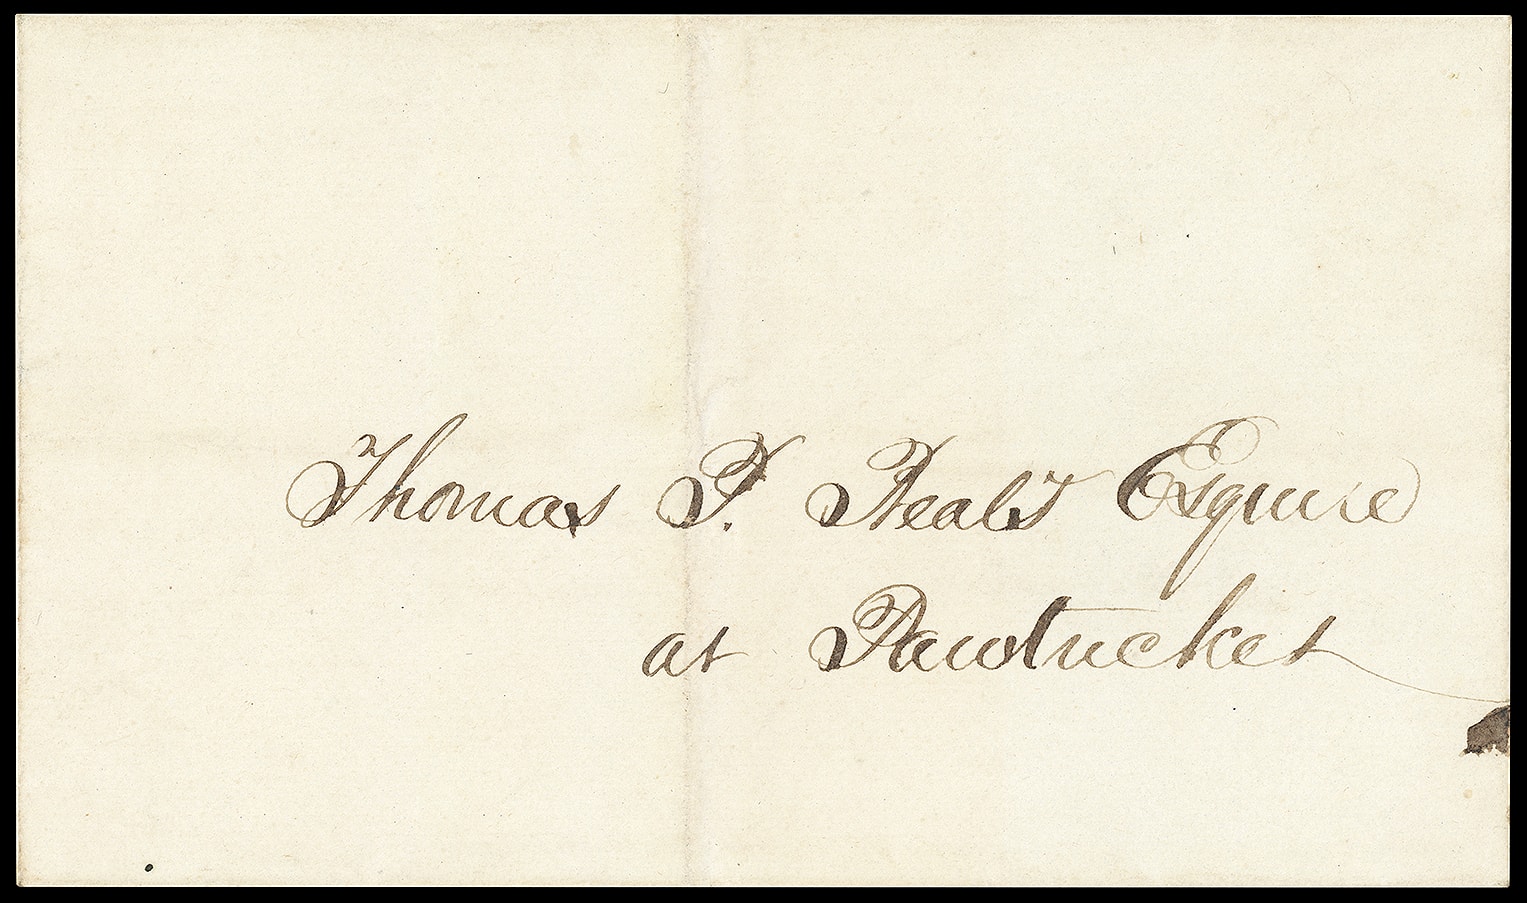 Thomas P. Esquire
at Pawtucket